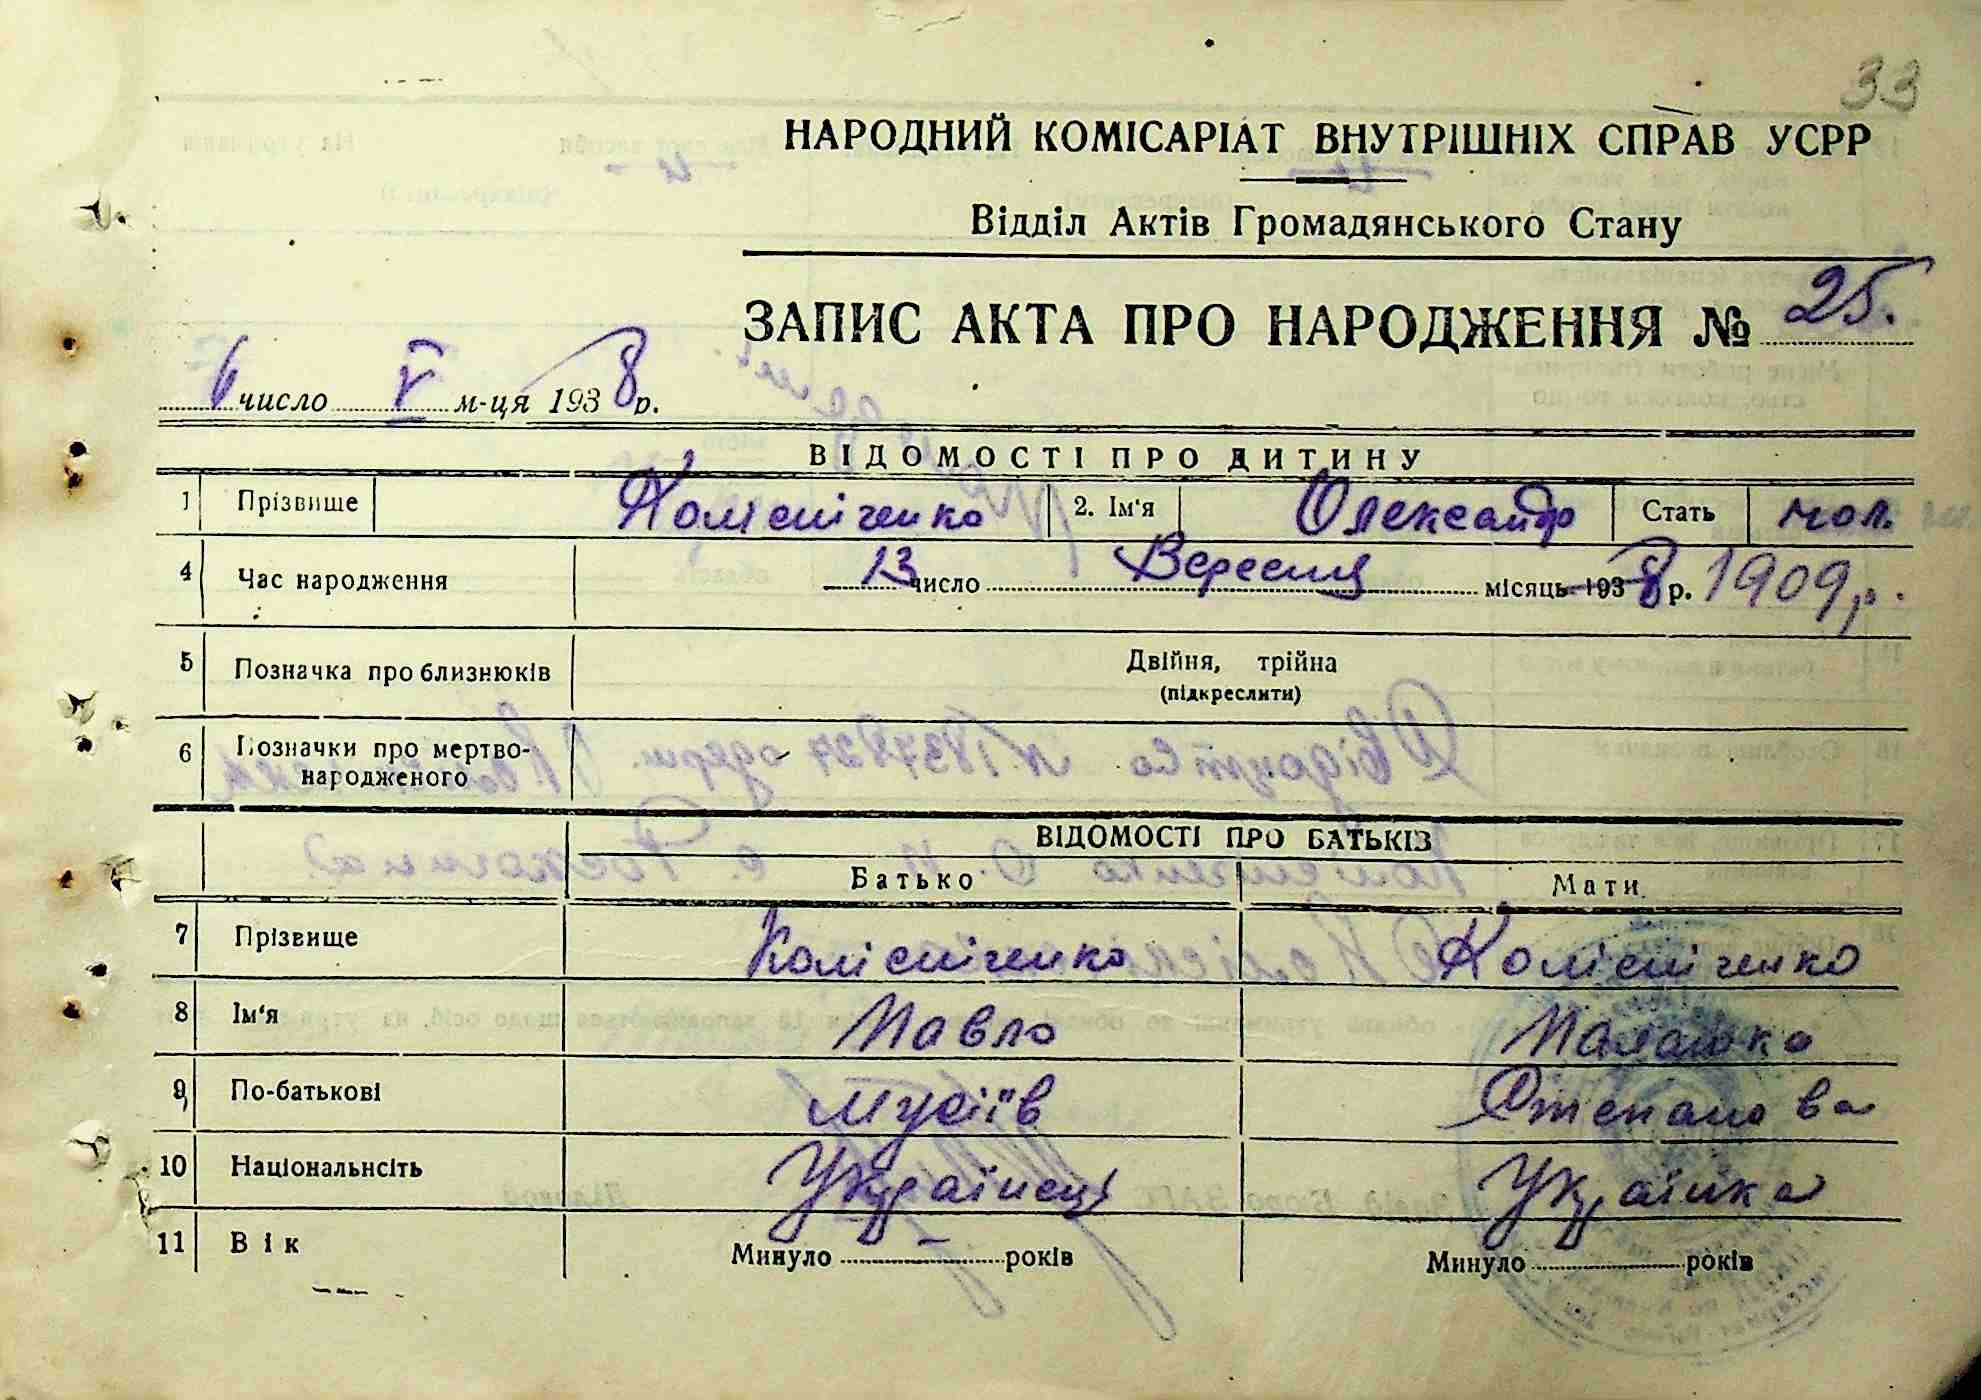 33
НАРОДНИЙ КОМІСАРІАТ ВНУТРІШНІХ СПРАВ УСРР
Відділ Актів Громадянського Стану
ЗАПИС АКТА ПРО НАРОДЖЕННЯ № 25.
6 число V м-ця 1938 8 р.
ВІДОМОСТІ ПРО ДИТИНУ
1 Прізвище Колісніченко 2. Ім'я Олександр Стать чол.
4 Час народження 13 число Вересня місяць 1938 р. 1909 р.
5 Позначка про близнюків Двійня, трійна
(підкреслити)
6 Позначки про мертво-
народженого
ВІДОМОСТІ ПРО БАТЬКІВ
Батько Мати
7 Прізвище Колісніченко Колісніченко
8 Ім'я Павло Малашка
9 По-батькові Мусіїв Степанова
10 Національнсіть Українець Українка
11 Вік Минуло років Минуло років